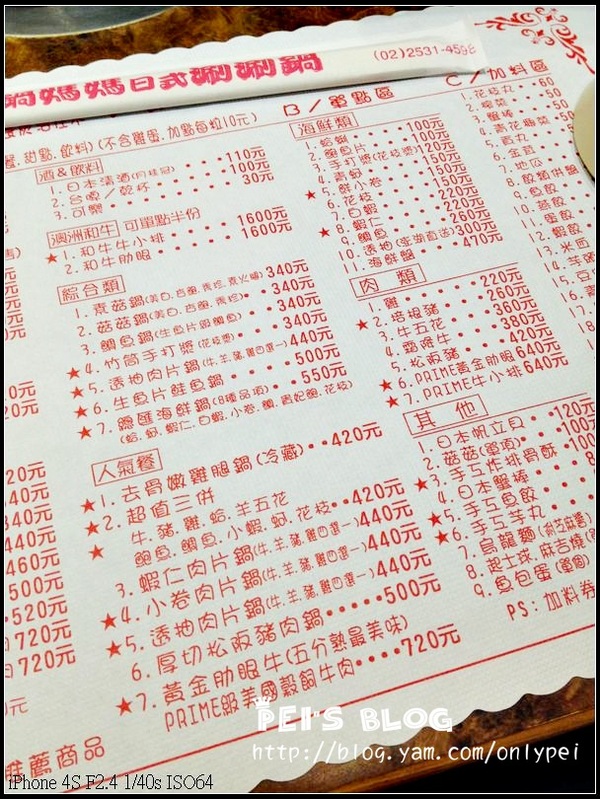 鍋媽媽日式涮涮鍋
(02)2531-4598
甜點.飲料)(不含雞蛋.加點每粒10元)
B/單點區
C/加料區
酒&飲料
1.日本清酒(月桂冠)‧‧‧110元
2.台啤/乾杯‧‧‧100元
3.可樂‧‧‧30元
澳洲和牛 可單點半份
★1.和牛牛小排‧‧‧1600元
2.和牛肋眼‧‧‧1600元
綜合類
1.素菇鍋‧‧‧340元
2.菇菇鍋‧‧‧340元
3.鯛魚鍋‧‧‧340元
★4.竹筒手打漿(花枝漿)‧‧‧340元
★5.透抽肉片鍋(牛.羊.豬.雞四選一)440元
★6.生魚片鮭魚鍋‧‧‧500元
★7.總匯海鮮鍋(8種品項)‧‧‧550元
人氣餐
★1.去骨嫩雞腿鍋(冷藏)‧‧420元
★2.超值三併
★牛.豬.雞.蛤.羊五花‧‧420元
鮑魚.鯛魚.小蝦.蚵.花枝‧‧440元
3.蝦仁肉片鍋(牛.羊.豬.雞四選一)440元
★4.小卷肉片鍋(牛.羊.豬.雞四選一)440元
★5.透抽肉片鍋(牛.羊.豬.雞四選一)440元
6.厚切松阪豬肉鍋‧‧‧‧‧500元
★7.黃金肋眼牛(五分熟最美味)
PRIME級美國穀飼牛肉‧‧‧‧720元
海鮮類
1.蛤蠣‧‧‧100元
2.鮑魚片‧‧‧100元
3.手打漿(花枝漿)120元
4.青蚵‧‧‧150元
★5.鮮小卷‧‧‧150元
6.花枝‧‧‧150元
7.白蝦‧‧‧220元
★8.蝦仁‧‧‧220元
9.鯛魚‧‧‧260元
10.透抽(澎湖直送)300元
11.海鮮盤‧‧‧470元
肉類
1.雞‧‧‧220元
★2.培根豬‧‧‧260元
3.牛五花‧‧‧360元
4.霜降牛‧‧‧380元
5.松阪豬‧‧‧420元
★6.PRIME黃金肋眼640元
★7.PRIME牛小排640元
其他
1.日本帆立貝‧‧120元
2.菇菇(單項)‧‧100元
★3.手工炸排骨酥
4.日本蟹棒
★5.手工魚餃
★6.手工芋丸
7.烏龍麵
8.起士球.麻吉燒
9.魚包蛋(單個)
PS:加料券
1.花枝丸‧‧60
2.榨菜‧‧50
3.蟹棒
4.青花椰菜
5.貢丸
6.金菇
7.地瓜
8.餃類併盤
9.魚餃
10.燕餃
11.蛋餃
12.蝦餃
13.米血
14.芋頭
15.豆
440元
460元
500元
520元
720元
720元
推薦商品
PEI'S BLOG
http://blog.yam.com/onlypei
iPhone 4S F2.4 1/40s ISO64